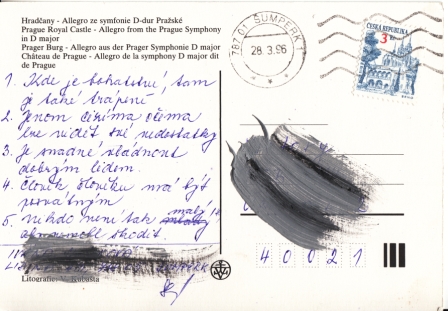 Hradčany - Allegro ze symfonie D-dur Pražské
Prague Royal Castle - Allegro from the Prague Symphony
in D major
Prager Burg - Allegro aus der Prager Symphonie D major
Château de Prague - Allegro de la symphony D major dit
de Prague
787 01 ŠUMPERK 1
28. 3. 96
ČESKÁ REPUBLIKA
3
1. Kde je bohatství, tam
je také trápení
2. Jenom cizíma očima
lze vidět své nedostatky
3. Je snadné vládnout
dobrým lidem.
4. Člověk člověku má být
posvátným
5. Nikdo není tak malý,
aby nemohl škodit.
Litografie: V. Kubašta
40021